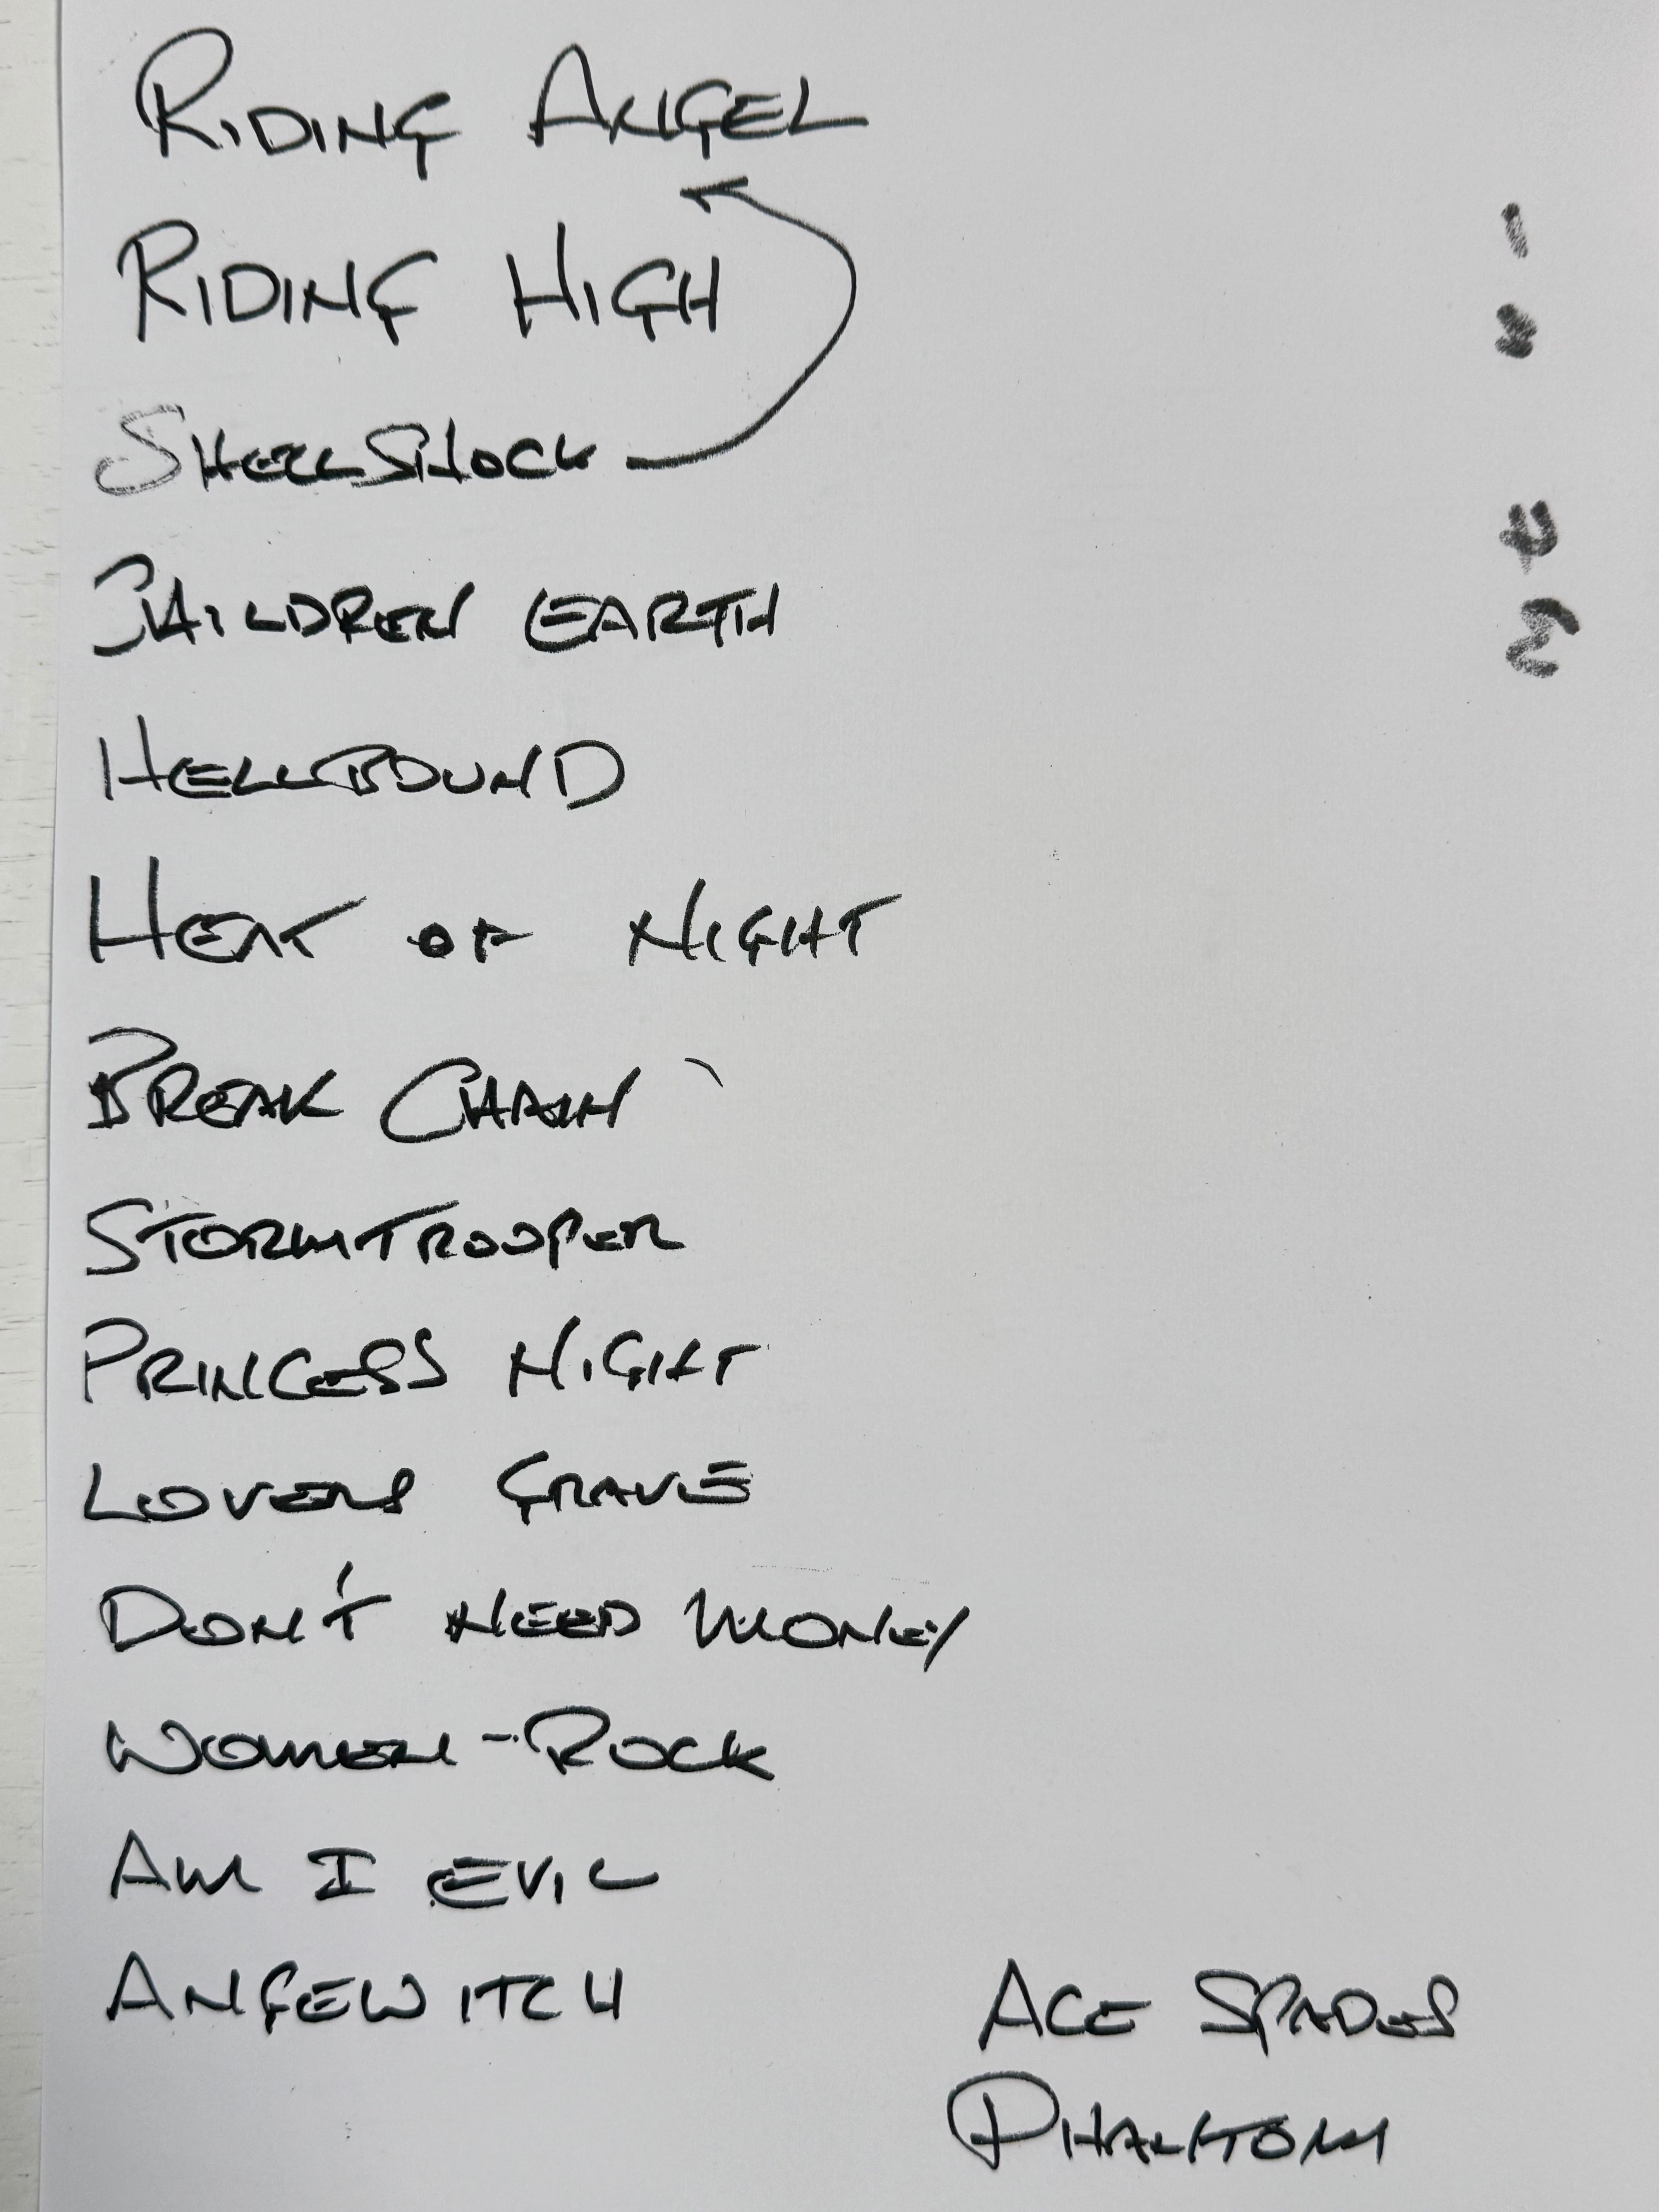 RIDING ANGEL
RIDING HIGH
SHELLSHOCK
CHILDREN EARTH
HELLBOUND
HEAT OF NIGHT
BREAK CHAIN
STORMTROOPER
PRINCESS NIGHT
LOVERS GRAVE
DON'T NEED MONEY
WOMEN-ROCK
AM I EVIL
ANGEWITCH
ACE SPADES
PHANTOM